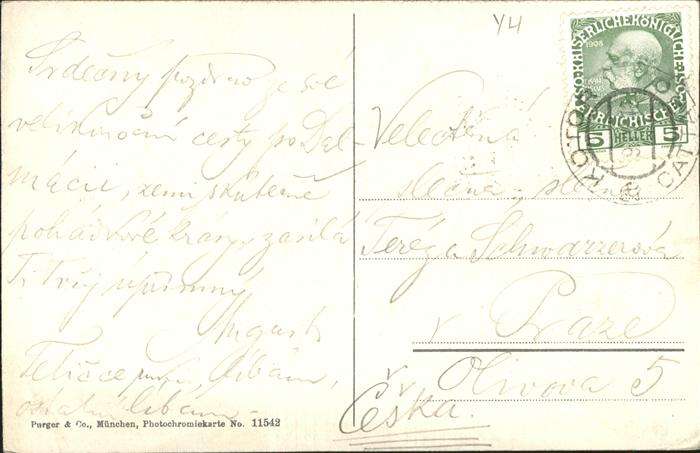 Y4
Srdečný pozdrav ze své
velikonoční cesty po Dal-
mácii, zemi skutečně
pohádkové krásy, zasílá
Ti Tvůj upřímný
August
Tetičce líbám,
ostatní líbám
Purger & Co., München, Photochromiekarte No. 11542
KAISERLICHE KÖNIGLICHE
1908
5 HELLER 5
KOTOR
CATTARO
Velectěná
slečna, slečna
Teréza Schwarzerová
v Praze
Olivova 5
Česka.